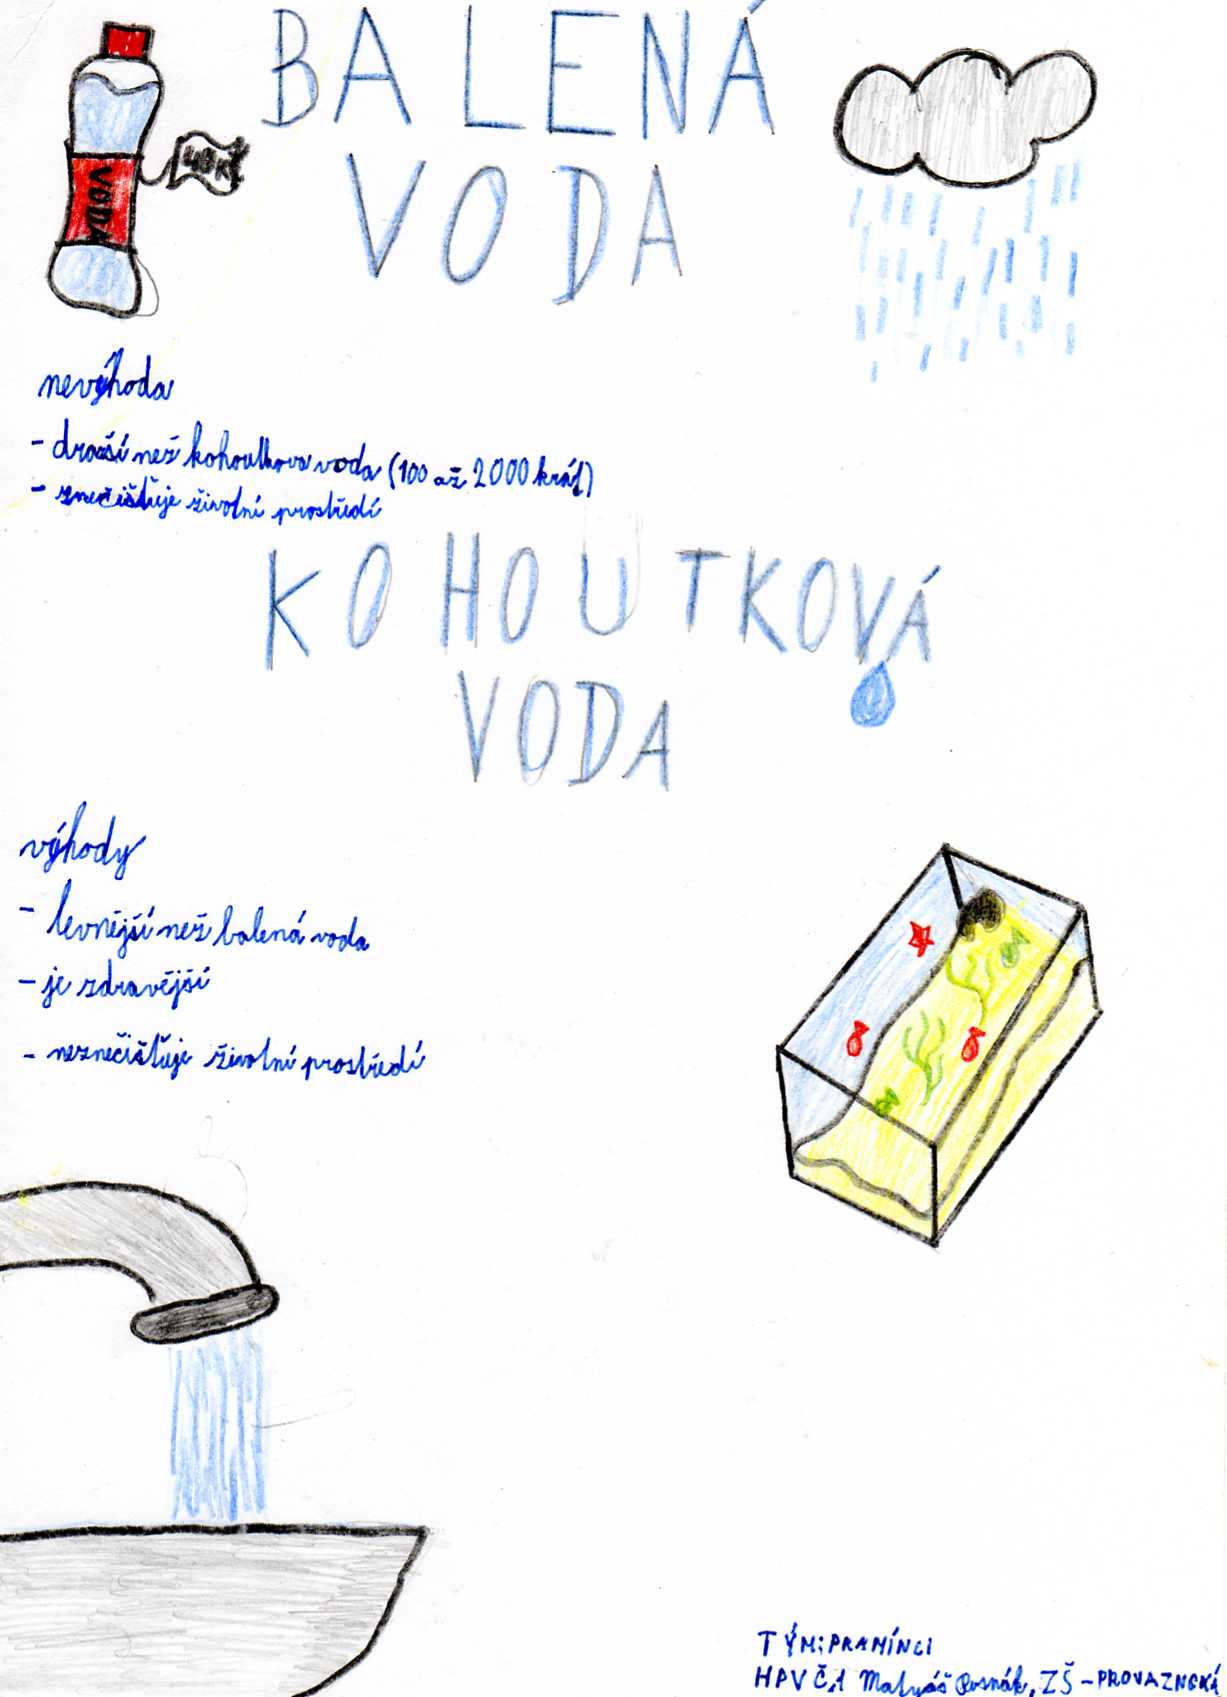 BALENÁ
VODA
VODA
nevýhoda
- drazší než kohoutkova voda (100 až 2000 krát)
- znečišťuje životní prostředí
KOHOUTKOVÁ
VODA
výhody
- levnější než balená voda
- je zdravější
- neznečišťuje životní prostředí
TÝM: PRAMÍNCI
HPV Č.1 Matyáš, ZŠ - PROVAZNCKÁ